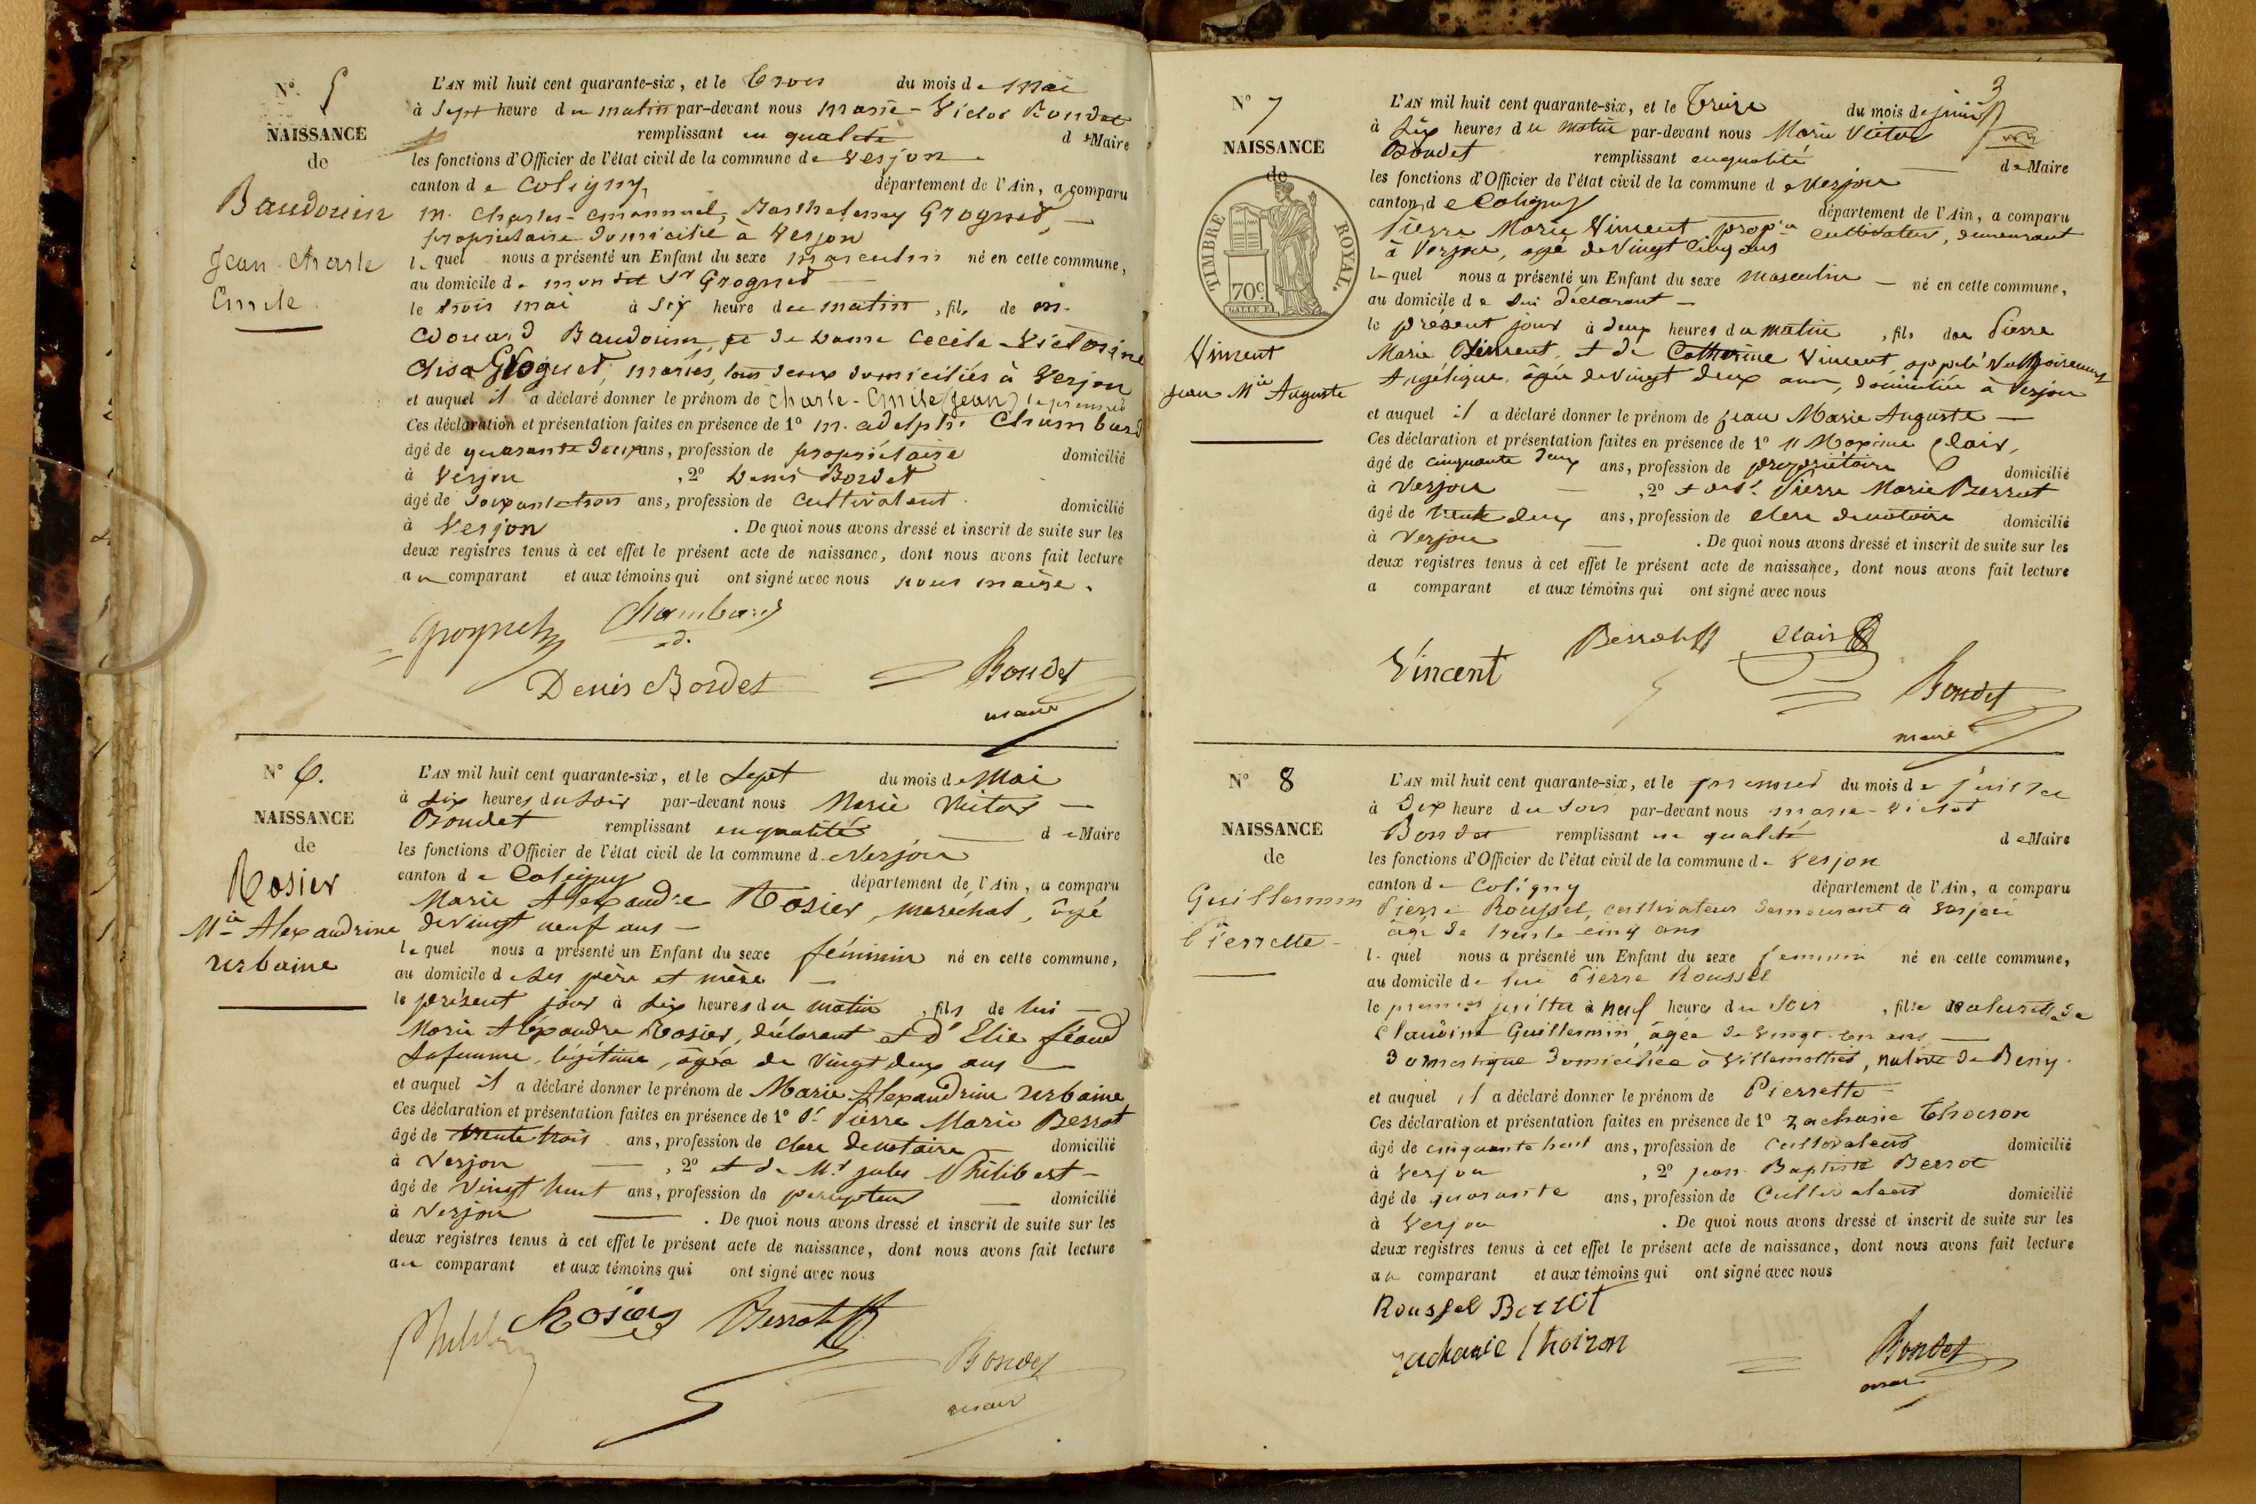 N° 5
NAISSANCE
de
Baudouin
Jean Charle
Emile
L'AN mil huit cent quarante-six, et le trois du mois de mai
à sept heure du matin par-devant nous marie-Victor Bondet
remplissant en qualité de Maire
les fonctions d'Officier de l'état civil de la commune de Verjon
canton de Coligny département de l'Ain, a comparu
m. Charles-emmanuel, Barthelemy Grognet,
propriétaire domicilié à Verjon
lequel nous a présenté un Enfant du sexe masculin né en cette commune,
au domicile de mon dit Sr Grognet
le trois mai à six heure du matin, fils de m.
Edouard Baudouin, et de Dame Cecile-Victorine
Elisa Grognet, mariés, tous deux domiciliés à Verjon
et auquel il a déclaré donner le prénom de Charle-Emile (Jean) le premier
Ces déclaration et présentation faites en présence de 1° m. adolphe Chambard
âgé de quarante deux ans, profession de propriétaire domicilié
à Verjon, 2° Denis Bordet
âgé de soixante trois ans, profession de cultivateur domicilié
à Verjon. De quoi nous avons dressé et inscrit de suite sur les
deux registres tenus à cet effet le présent acte de naissance, dont nous avons fait lecture
au comparant et aux témoins qui ont signé avec nous nous maire.
Grognet Chambard
Denis Bordet Bondet
maire
N° 6.
NAISSANCE
de
Rosier
Mie Alexandrine
Urbaine
L'AN mil huit cent quarante-six, et le sept du mois de Mai
à six heures du soir par-devant nous Marie Victor
Bondet remplissant en qualité de Maire
les fonctions d'Officier de l'état civil de la commune de Verjon
canton de Coligny département de l'Ain, a comparu
Marie Alexandre Rosier, maréchal, âgé
de vingt neuf ans
lequel nous a présenté un Enfant du sexe féminin né en cette commune,
au domicile de ses père et mère
le présent jour à six heures du matin, fils de lui
Marie Alexandre Rosier, déclarant et d'Elie féaud
sa femme, légitime, âgée de vingt deux ans
et auquel il a déclaré donner le prénom de Marie Alexandrine Urbaine
Ces déclaration et présentation faites en présence de 1° Sr Pierre Marie Berrot
âgé de trente trois ans, profession de clerc de notaire domicilié
à Verjon, 2° et de Mr jules Philibert
âgé de vingt huit ans, profession de percepteur domicilié
à Verjon. De quoi nous avons dressé et inscrit de suite sur les
deux registres tenus à cet effet le présent acte de naissance, dont nous avons fait lecture
au comparant et aux témoins qui ont signé avec nous
Rosier Berrot
Bondet
maire
3
N° 7
NAISSANCE
de
TIMBRE ROYAL.
70c.
Vincent
jean Mie Auguste
L'AN mil huit cent quarante-six, et le treize du mois de juin
à six heures du matin par-devant nous Marie Victor
Bondet remplissant en qualité de Maire
les fonctions d'Officier de l'état civil de la commune de Verjon
canton de Coligny département de l'Ain, a comparu
Pierre Marie Vincent propre cultivateur, demeurant
à Verjon, agé de vingt cinq ans
lequel nous a présenté un Enfant du sexe masculin né en cette commune,
au domicile de lui déclarant
le présent jour à deux heures du matin, fils de Pierre
Marie Vincent, et de Catherine Vincent, appelé
Angélique, âgée de vingt deux ans, domiciliée à Verjon
et auquel il a déclaré donner le prénom de jean Marie Auguste
Ces déclaration et présentation faites en présence de 1° Maxime Clair,
âgé de cinquante deux ans, profession de propriétaire domicilié
à Verjon, 2° et de Sr Pierre Marie Berrot
âgé de trente deux ans, profession de clerc de notaire domicilié
à Verjon. De quoi nous avons dressé et inscrit de suite sur les
deux registres tenus à cet effet le présent acte de naissance, dont nous avons fait lecture
a comparant et aux témoins qui ont signé avec nous
Vincent Berrot Clair
Bondet
maire
N° 8
NAISSANCE
de
Guillermin
Pierrette
L'AN mil huit cent quarante-six, et le premier du mois de juillet
à dix heure du soir par-devant nous marie-victor
Bondet remplissant en qualité de Maire
les fonctions d'Officier de l'état civil de la commune de Verjon
canton de Coligny département de l'Ain, a comparu
Pierre Roussel, cultivateur demeurant à Verjon
âgé de trente-cinq ans
lequel nous a présenté un Enfant du sexe feminin né en cette commune,
au domicile de lui Pierre Roussel
le premier juillet à neuf heures du soir, fille naturelle de
Claudine Guillermin, âgée de vingt ans
domestique domiciliée à Villemottier, native de Beny.
et auquel il a déclaré donner le prénom de Pierrette
Ces déclaration et présentation faites en présence de 1° Zacharie Thoiron
âgé de cinquante huit ans, profession de cultivateur domicilié
à Verjon, 2° jean Baptiste Berrot
âgé de quarante ans, profession de Cultivateur domicilié
à Verjon. De quoi nous avons dressé et inscrit de suite sur les
deux registres tenus à cet effet le présent acte de naissance, dont nous avons fait lecture
au comparant et aux témoins qui ont signé avec nous
Roussel Berrot
Zacharie Thoiron Bondet
maire